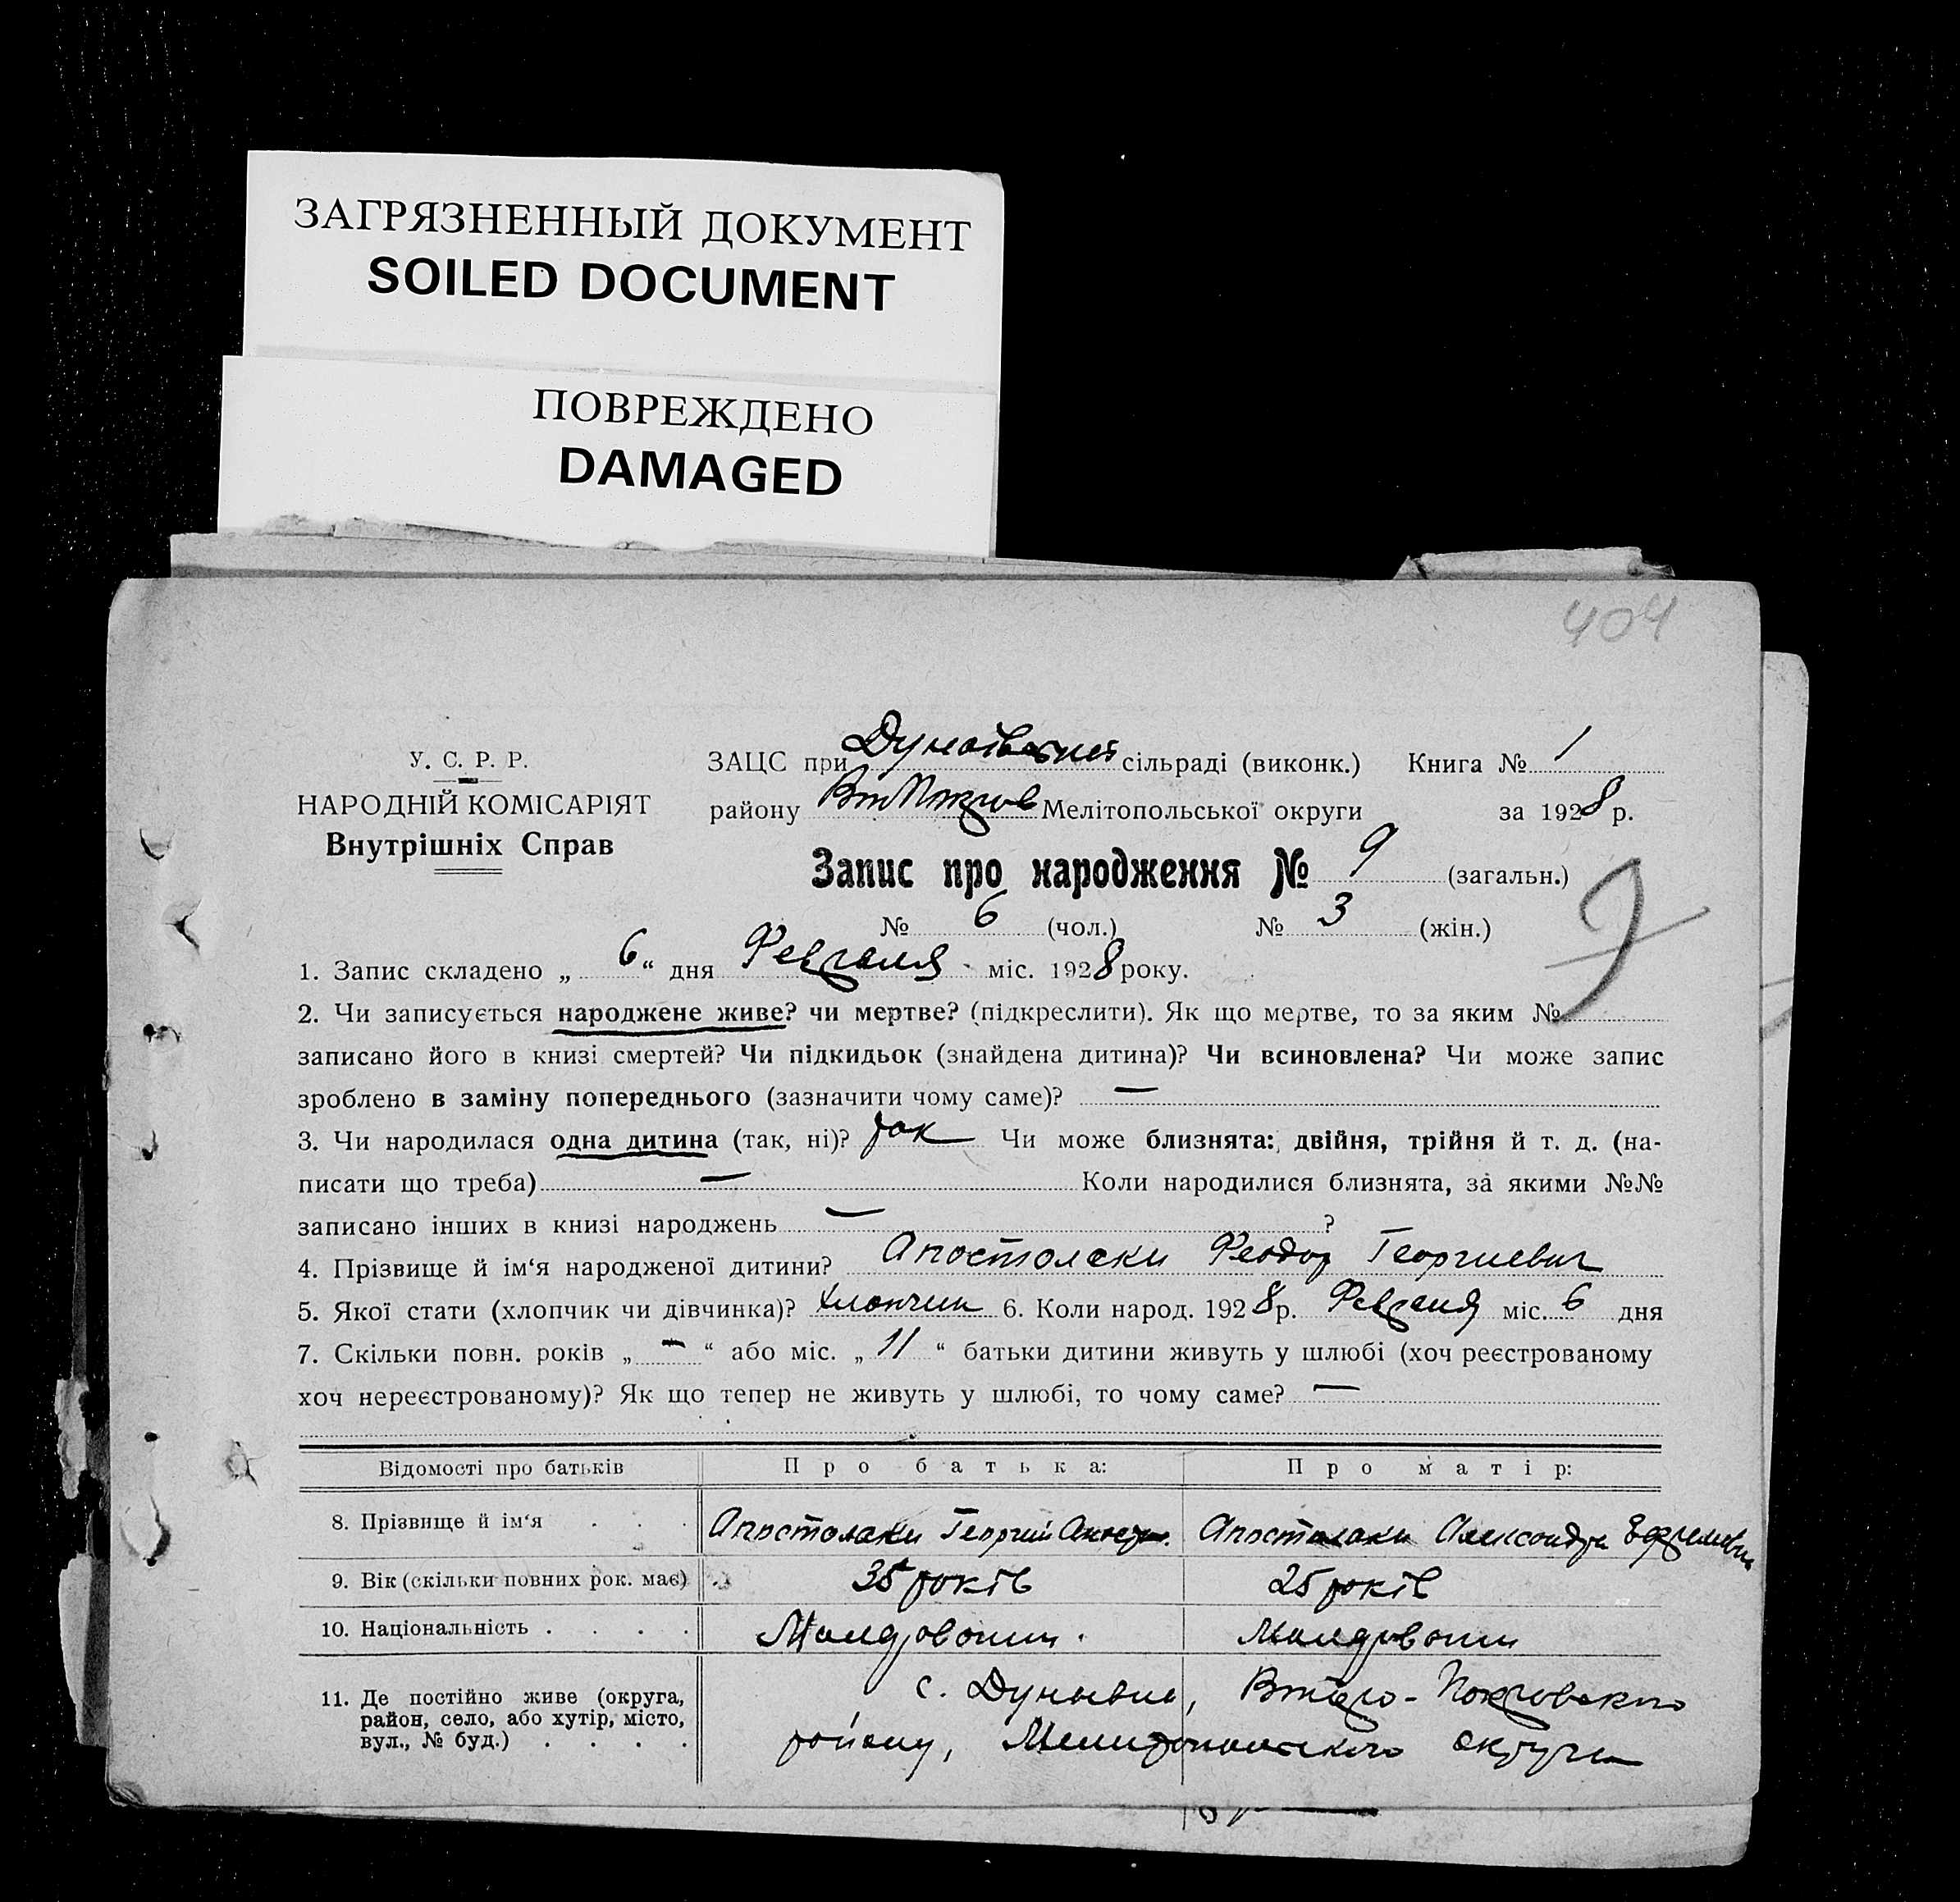 ЗАГРЯЗНЕННЫЙ ДОКУМЕНТ
SOILED DOCUMENT
ПОВРЕЖДЕНО
DAMAGED
404
У. С. Р. Р.
НАРОДНІЙ КОМІСАРІЯТ
Внутрішніх Справ
ЗАЦС при сільраді (виконк.) Книга № 1
району Мелітопольської округи за 1928 р.
Запис про народження № 9 (загальн.)
№ 6 (чол.) № 3 (жін.)
9
1. Запис складено „ 6 “ дня Февраля міс. 1928 року.
2. Чи записується народжене живе? чи мертве? (підкреслити). Як що мертве, то за яким №
записано його в книзі смертей? Чи підкидьок (знайдена дитина)? Чи всиновлена? Чи може запис
зроблено в заміну попереднього (зазначити чому саме)? —
3. Чи народилася одна дитина (так, ні)? так Чи може близнята: двійня, трійня й т. д. (на-
писати що треба) — Коли народилися близнята, за якими №№
записано інших в книзі народжень — ?
4. Прізвище й ім‘я народженої дитини? Апостолаки Феодор Георгиевич
5. Якої стати (хлопчик чи дівчинка)? хлопчик 6. Коли народ. 1928 р. Февраля міс. 6 дня
7. Скільки повн. років „ — “ або міс. „ 11 “ батьки дитини живуть у шлюбі (хоч реєстрованому
хоч нереєстрованому)? Як що тепер не живуть у шлюбі, то чому саме? —
Відомості про батьків Про батька: Про матір:
8. Прізвище й ім‘я . . . Апостолаки Георгий Апостолаки Александра Ефремовна
9. Вік (скільки повних рок. має) 35 років 25 років
10. Національність . . . . Молдовани. Молдовани
11. Де постійно живе (округа, район, село, або хутір, місто, вул., № буд.) . . . . с. Дунаївка, Второ-Покровского
району, Мелитопольского округи